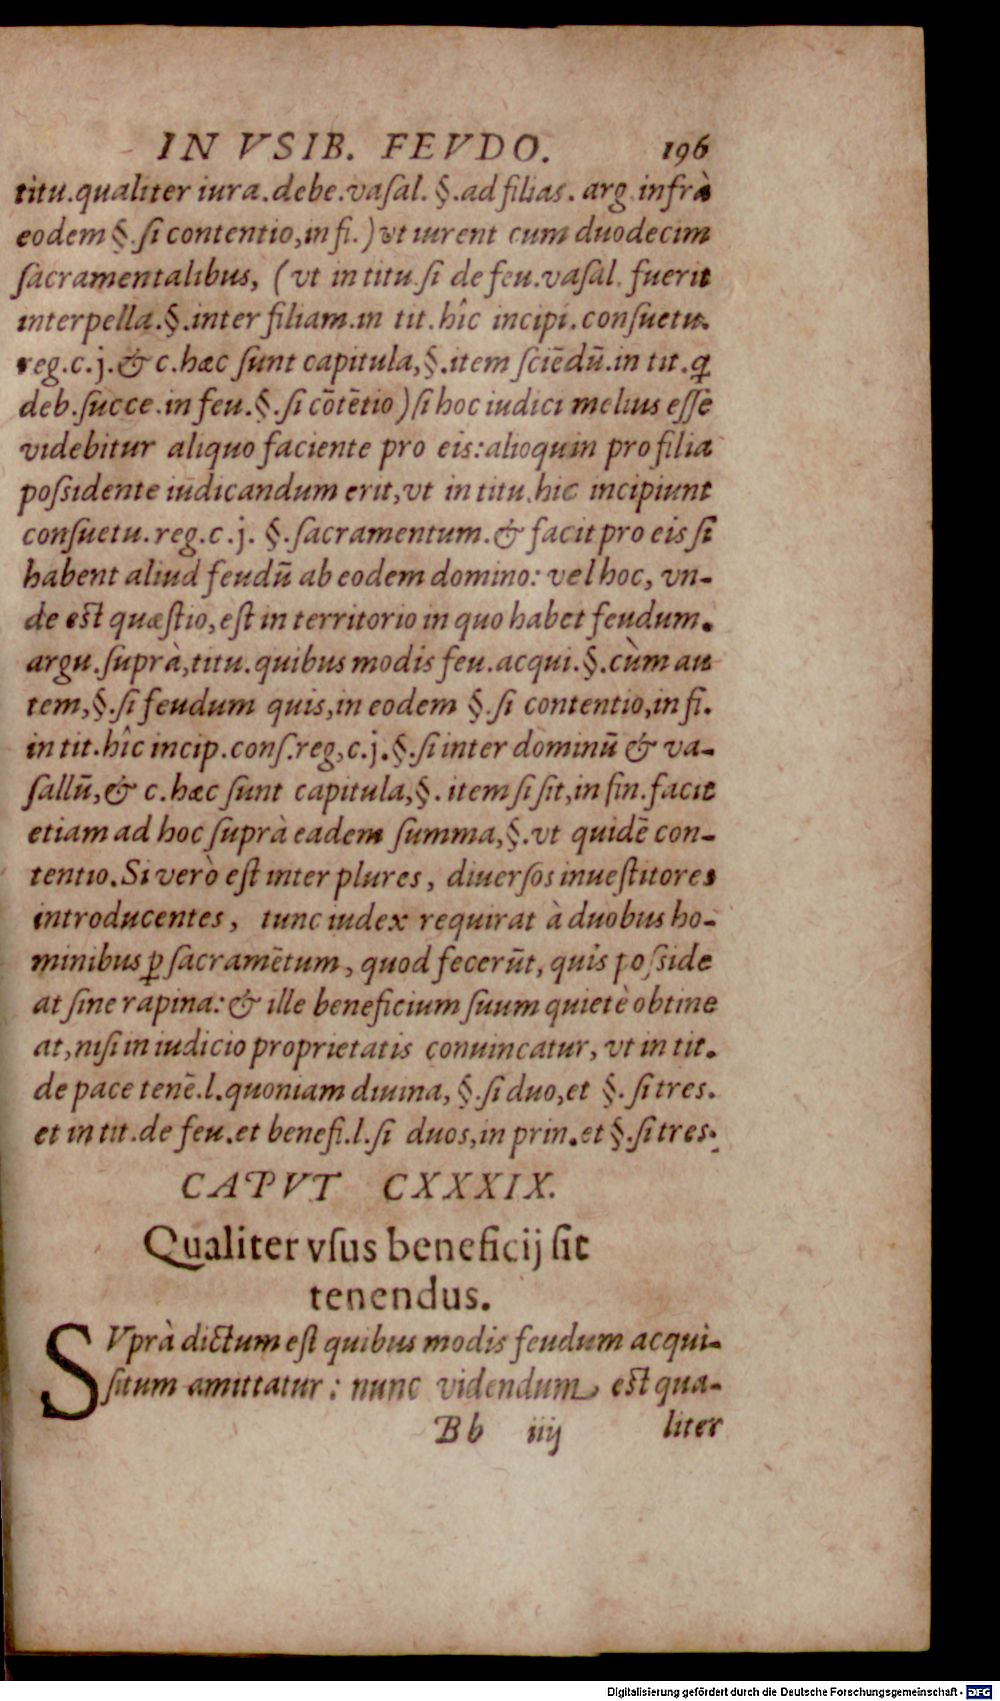 IN VSIB. FEVDO. 196
titu.qualiter iura.debe.vaſal. §.ad filias. arg.infrà
eodem §.ſi contentio,in fi.) vt iurent cum duodecim
ſacramentalibus, (vt in titu.ſi de feu.vaſal. fuerit
interpella.§.inter filiam.in tit.hîc incipi.conſuetu.
reg.c.j.& c.hæc ſunt capitula,§.item ſciēdū.in tit.q̃
deb.ſucce.in feu.§.ſi cōtētio)ſi hoc iudici melius eſſe
videbitur aliquo faciente pro eis:alioquin pro filia
poſsidente iudicandum erit,vt in titu.hic incipiunt
conſuetu.reg.c.j. §.ſacramentum.& facit pro eis ſi
habent aliud feudū ab eodem domino: vel hoc, vn-
de est quæſtio,eſt in territorio in quo habet feudum.
argu.ſuprà,titu.quibus modis feu.acqui.§.cùm au
tem,§.ſi feudum quis,in eodem §.ſi contentio,in fi.
in tit.hîc incip.conſ.reg,c.j.§.ſi inter dominū & va-
ſallū,& c.hæc ſunt capitula,§. item ſi ſit,in fin.facit
etiam ad hoc ſuprà eadem ſumma,§.vt quidē con-
tentio.Si verò eſt inter plures, diuerſos inueſtitores
introducentes, tunc iudex requirat à duobus ho-
minibus ꝑ ſacramētum, quod fecerūt, quis poſside
at ſine rapina:& ille beneficium ſuum quietè obtine
at,niſi in iudicio proprietatis conuincatur, vt in tit.
de pace tenē.l.quoniam diuina, §.ſi duo,et §. ſi tres.
et in tit.de feu.et benefi.l.ſi duos,in prin.et §.ſi tres.
CAPVT CXXXIX.
Qualiter vſus beneficij ſit
tenendus.
SVprà dictum eſt quibus modis feudum acqui-
ſitum amittatur : nunc videndum est qua-
Bb iiij liter
Digitalisierung gefördert durch die Deutsche Forschungsgemeinschaft - DFG